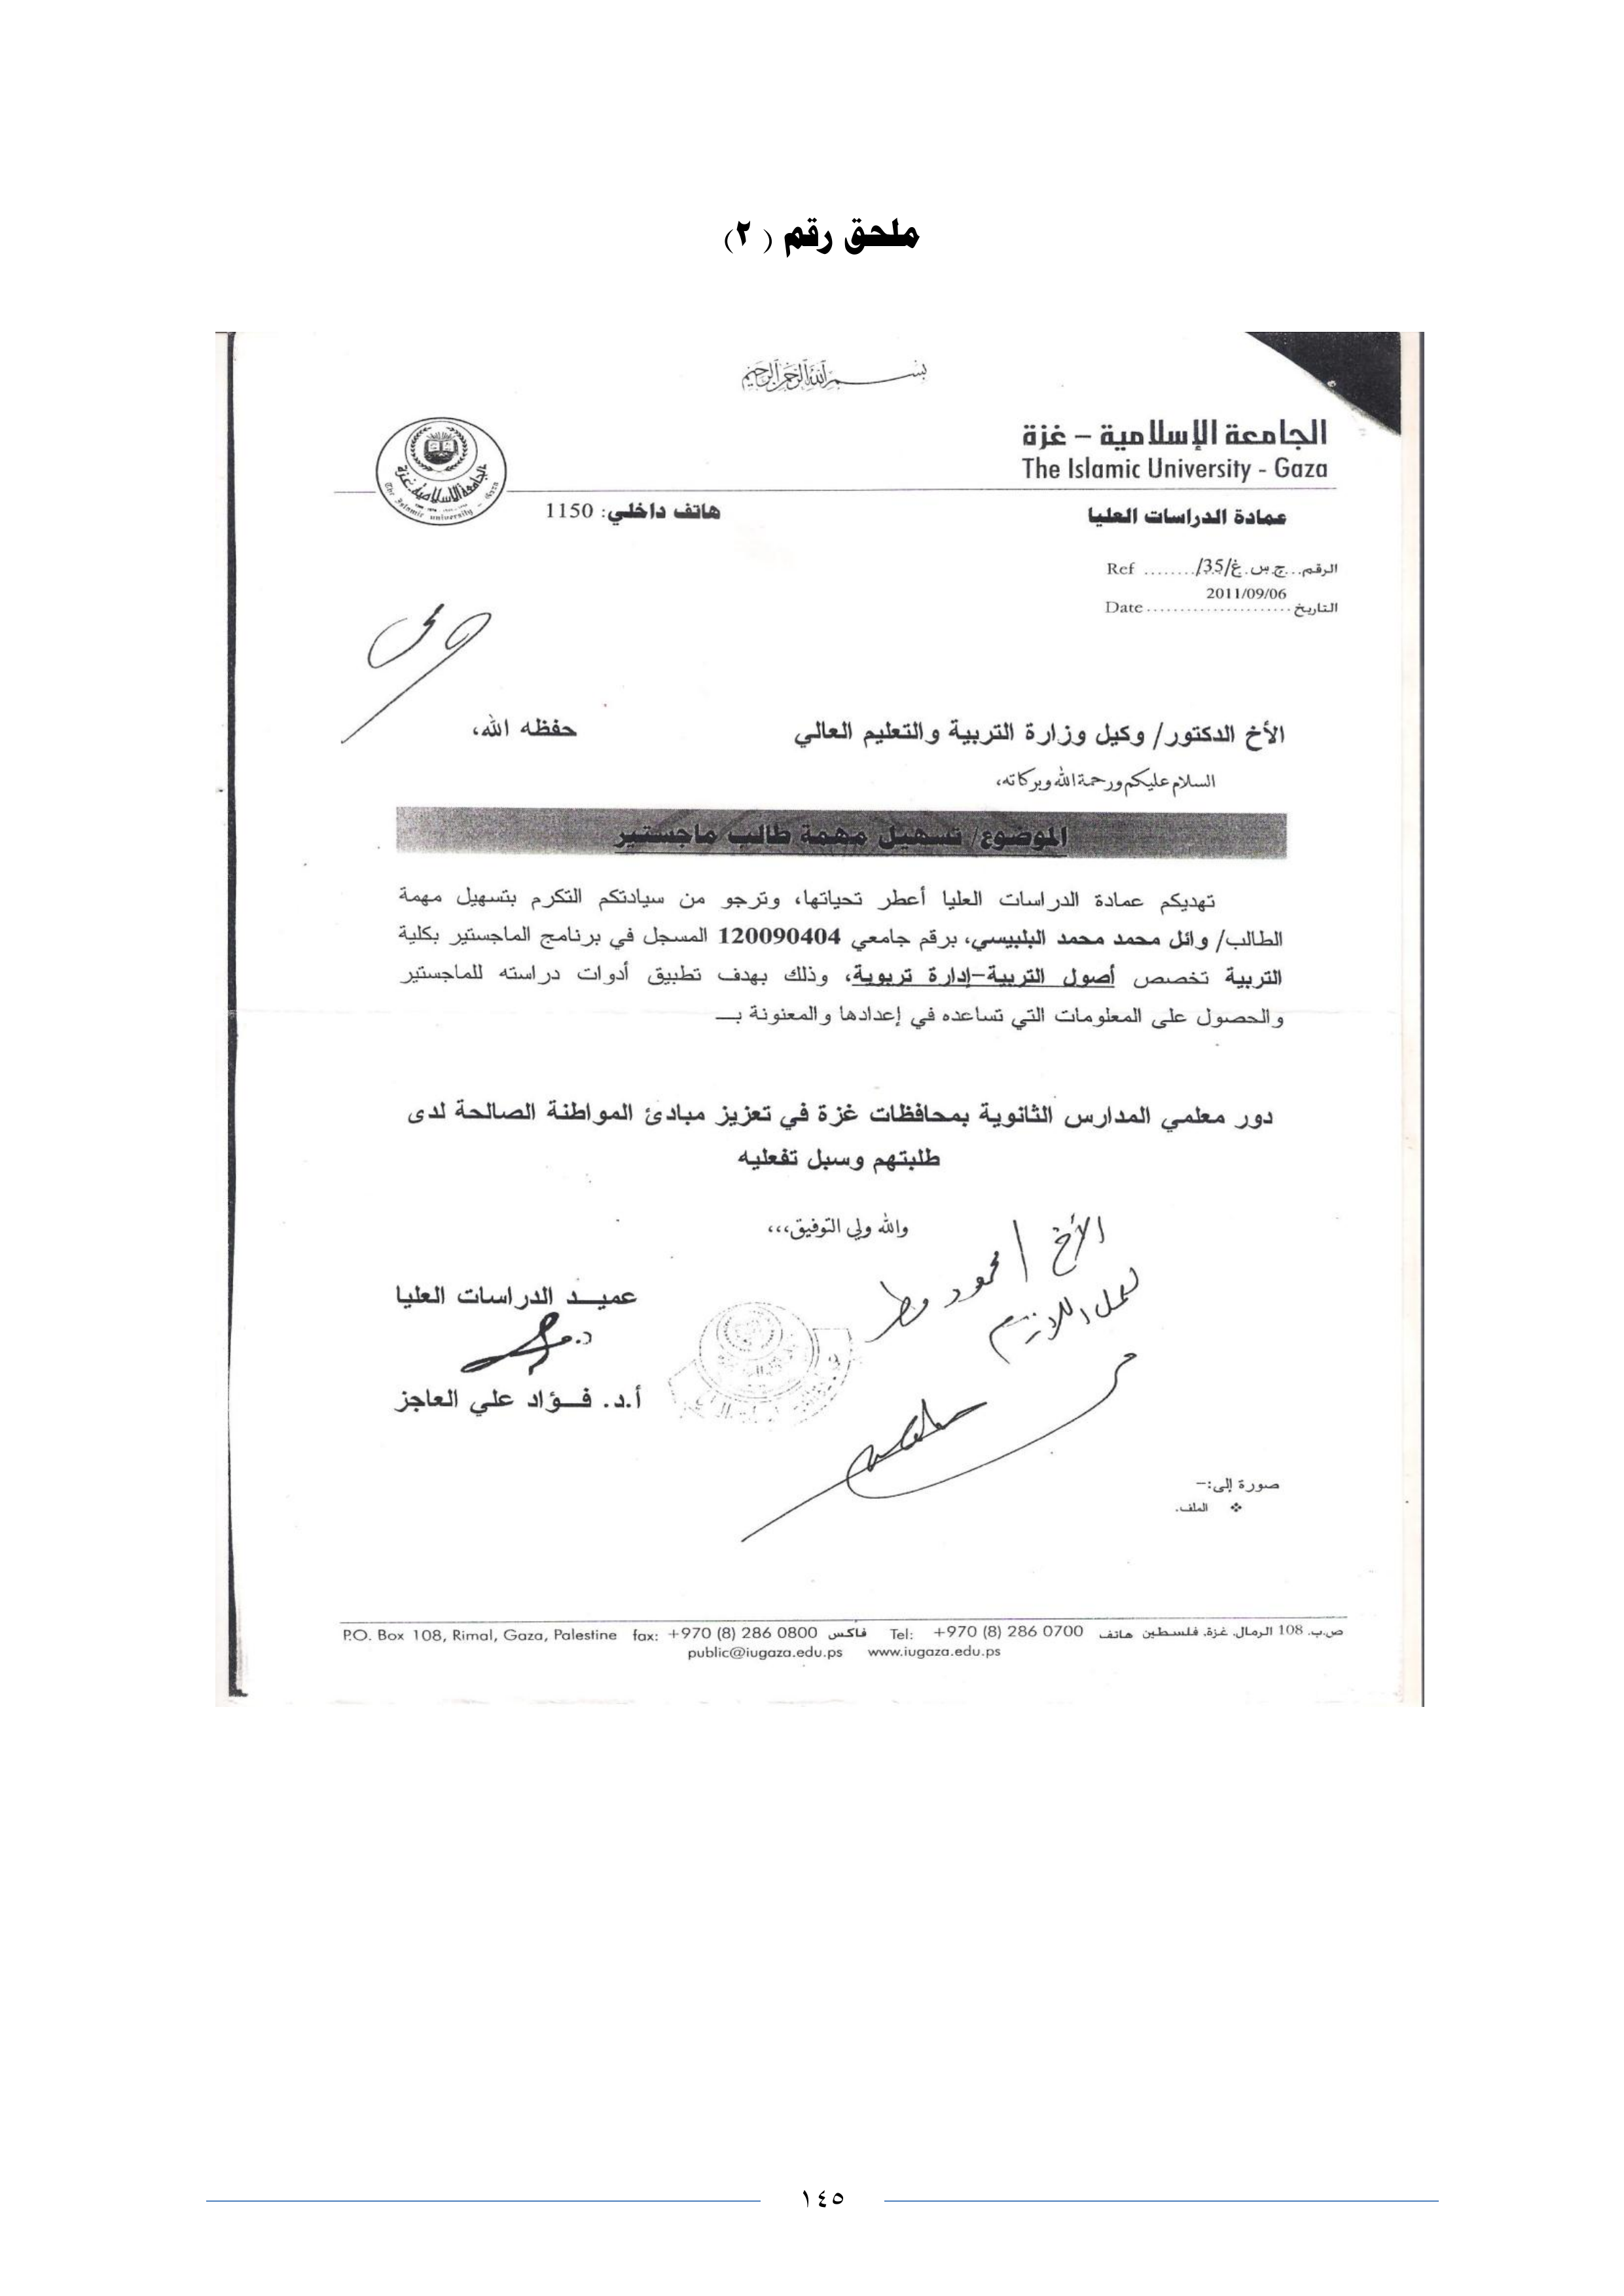 ملحق رقم ( ٢)
بسم الله الرحمن الرحيم
الجامعة الإسلامية – غزة
The Islamic University - Gaza
الجامعة الإسلامية غزة
The Islamic university - Gaza
عمادة الدراسات العليا
هاتف داخلي: 1150
الرقم...ج.س.غ/35/........ Ref
2011/09/06
التاريخ ...................... Date
الأخ الدكتور/ وكيل وزارة التربية والتعليم العالي حفظه الله،
السلام عليكم ورحمة الله وبركاته،
الموضوع/ تسهيل مهمة طالب ماجستير
تهديكم عمادة الدراسات العليا أعطر تحياتها، وترجو من سيادتكم التكرم بتسهيل مهمة
الطالب/ وائل محمد محمد البلبيسي، برقم جامعي 120090404 المسجل في برنامج الماجستير بكلية
التربية تخصص أصول التربية-إدارة تربوية، وذلك بهدف تطبيق أدوات دراسته للماجستير
والحصول على المعلومات التي تساعده في إعدادها والمعنونة بـــ
دور معلمي المدارس الثانوية بمحافظات غزة في تعزيز مبادئ المواطنة الصالحة لدى
طلبتهم وسبل تفعليه
والله ولي التوفيق،،،
الأخ / محمود مطر
لعمل اللازم
عميـــد الدراسات العليا
أ.د. فـــؤاد علي العاجز
صورة إلى:-
❖ الملف.
P.O. Box 108, Rimal, Gaza, Palestine fax: +970 (8) 286 0800 فاكس Tel: +970 (8) 286 0700 هاتف ص.ب. 108 الرمال. غزة. فلسطين
public@iugaza.edu.ps www.iugaza.edu.ps
١٤٥